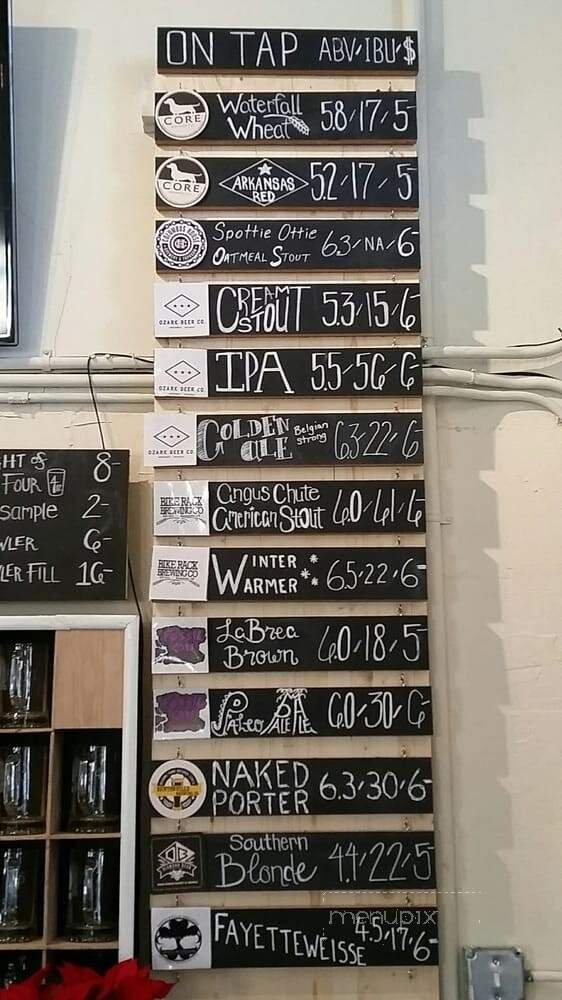 ON TAP ABV/IBU/$
CORE Waterfall Wheat 5.8/17/5-
CORE ARKANSAS RED 5.2/17/5-
Spottie Ottie Oatmeal Stout 6.3/NA/6-
OZARK BEER CO. CREAM STOUT 5.3/15/6-
OZARK BEER CO. IPA 5.5-56-6-
OZARK BEER CO. GOLDEN ALE Belgian strong 6.3-22-6-
BIKE RACK BREWING CO Angus Chute American Stout 6.0/61/6-
BIKE RACK BREWING CO WINTER WARMER 6.5-22-6-
LaBrea Brown 6.0/18/5-
Paleo Pale Ale 6.0/30/6-
NAKED PORTER 6.3/30/6-
Southern Blonde 4.4/22/5-
FAYETTEWEISSE 4.5/17/6-
HT of FOUR 8-
sample 2-
WLER 6-
LER FILL 16-
menupix